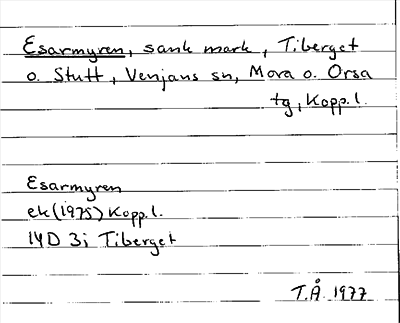 Esarmyren, sank mark, Tiberget
o. Stutt, Venjans sn, Mora o. Orsa
tg, Kopp.l.
Esarmyren
ek(1975) Kopp.l.
14D 3i Tiberget
T.Å. 1977